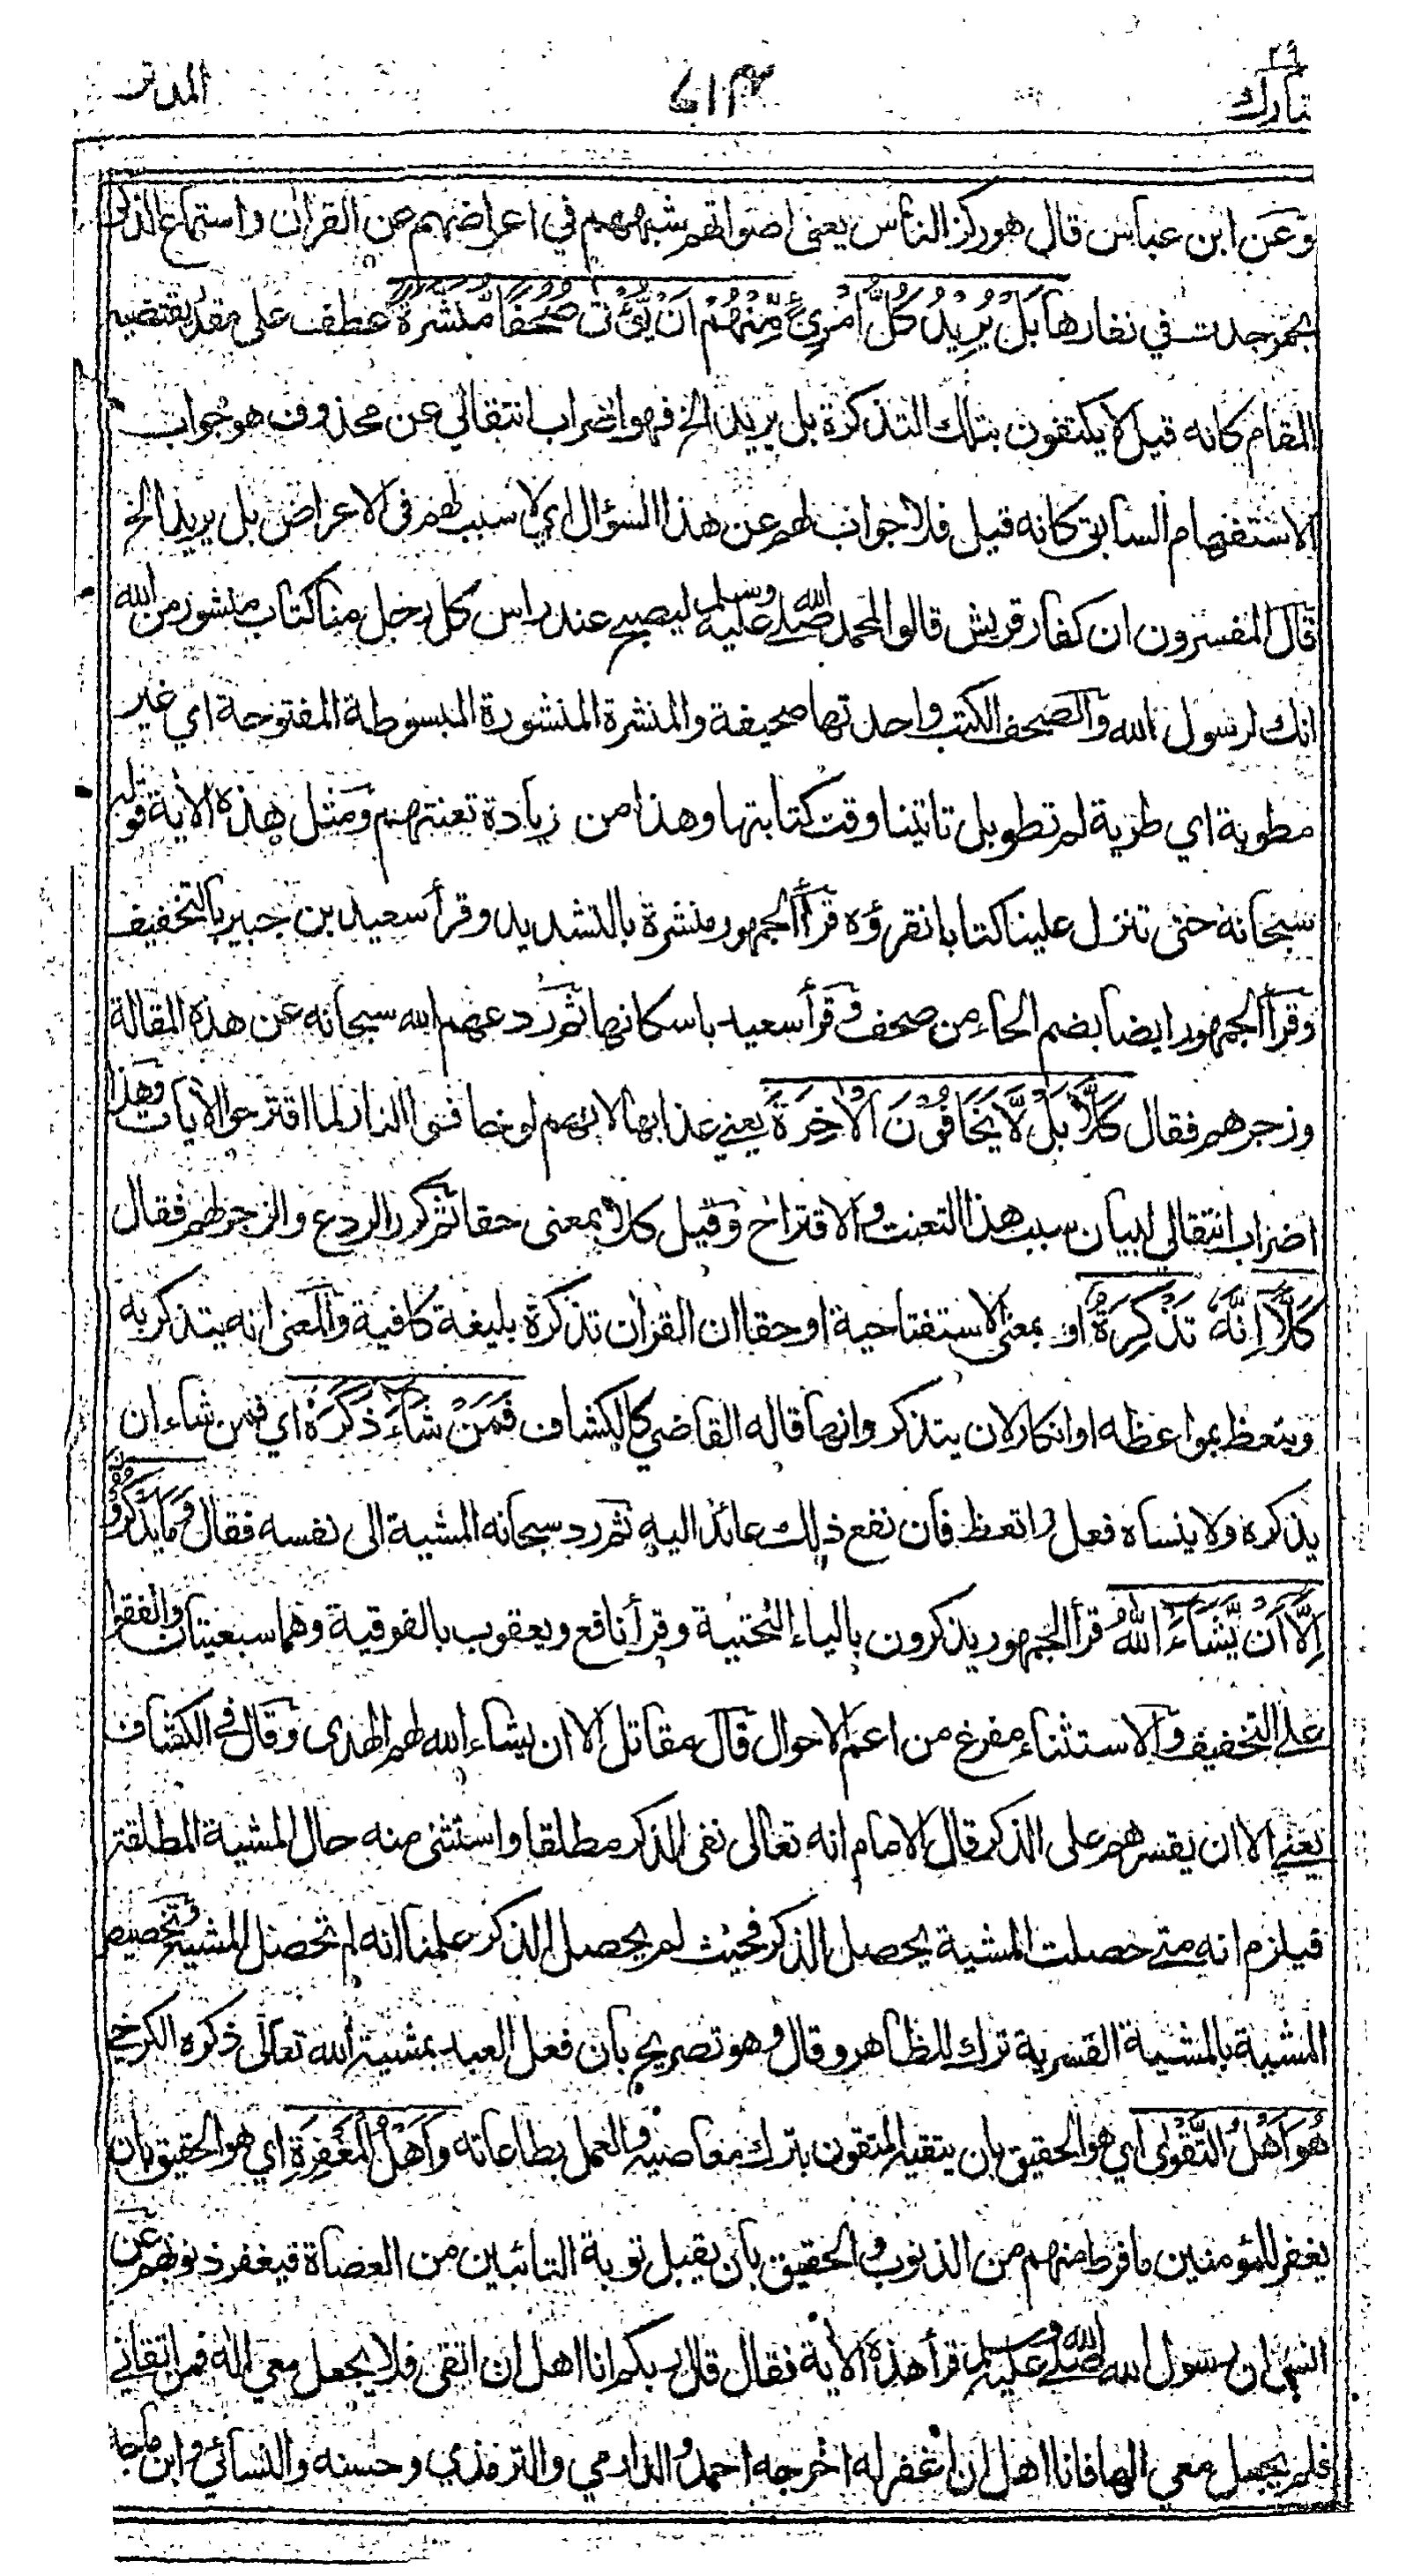 ٢٩
تبارك
المدثر
وعن ابن عباس قال هو ركز الناس يعني اصواتهم شبههم في اعراضهم عن القرآن واستماع الذكر
بحمر جدت في نفارها بَلْ يُرِيْدُ كُلُّ امْرِئٍ مِّنْهُمْ اَنْ يُّؤْتٰى صُحُفًا مُّنَشَّرَةً عطف على مقدر يقتضيه
المقام كانه قيل لا يكتفون بتلك التذكرة بل يريد الخ فهو اضراب انتقالي عن محذوف هو جواب
الاستفهام السابق كانه قيل فلا جواب لهم عن هذا السؤال اي لا سبب لهم في الاعراض بل يريد الخ
قال المفسرون ان كفار قريش قالوا لمحمد صلى الله عليه وسلم ليصبح عند راس كل رجل منا كتاب منشور من الله
انك لرسول الله والصحف الكتب واحدتها صحيفة والمنشرة المنشورة المبسوطة المفتوحة اي غير
مطوية اي طرية لم تطو بل تاتينا وقت كتابتها وهذا من زيادة تعنتهم ومثل هذه الاية قوله
سبحانه حتى تنزل علينا كتابا نقرؤه قرأ الجمهور منشرة بالتشديد وقرأ سعيد بن جبير بالتخفيف
وقرأ الجمهور ايضا بضم الحاء من صحف وقرأ سعيد باسكانها ثم ردعهم الله سبحانه عن هذه المقالة
وزجرهم فقال كَلَّا بَلْ لَّا يَخَافُوْنَ الْاٰخِرَةَ يعني عذابها لانهم لو خافوا النار لما اقترحوا الآيات وهذا
اضراب انتقالي لبيان سبب هذا التعنت والاقتراح وقيل كلا بمعنى حقا ثم كرر الردع والزجر لهم فقال
كَلَّا اِنَّهٗ تَذْكِرَةٌ او بمعنى الاستفتاحية او حقا ان القرآن تذكرة بليغة كافية والمعنى انه يتذكر به
ويتعظ بمواعظه او انكار لان يتذكروا بها قاله القاضي كالكشاف فَمَنْ شَاءَ ذَكَرَهٗ اي فمن شاء ان
يذكره ولا ينساه فعل واتعظ فان نفع ذلك عائد اليه ثم رد سبحانه المشية الى نفسه فقال وَمَا يَذْكُرُوْنَ
اِلَّا اَنْ يَّشَاءَ اللّٰهُ قرأ الجمهور يذكرون بالياء التحتية وقرأ نافع ويعقوب بالفوقية وهما سبعيتان واتفقوا
على التخفيف والاستثناء مفرغ من اعم الاحوال قال مقاتل الا ان يشاء الله لهم الهدى وقال في الكشاف
يعني الا ان يقسرهم على الذكر قال الامام انه تعالى نفى الذكر مطلقا واستثنى منه حال المشية المطلقة
فيلزم انه متى حصلت المشية يحصل الذكر فحيث لم يحصل الذكر علمنا انه لم تحصل المشية وتخصيص
المشية بالمشية القسرية ترك للظاهر وقال وهو تصريح بان فعل العبد بمشية الله تعالى ذكره الكرخي
هُوَ اَهْلُ التَّقْوٰى اي هو الحقيق بان يتقيه المتقون بترك معاصيه والعمل بطاعاته وَاَهْلُ الْمَغْفِرَةِ اي هو الحقيق بان
يغفر للمؤمنين ما فرط منهم من الذنوب والحقيق بان يقبل توبة التائبين من العصاة فيغفر ذنوبهم عن
انس ان رسول الله صلى الله عليه وسلم قرأ هذه الاية فقال قال ربكم انا اهل ان اتقى فلا يجعل معي اله فمن اتقاني
فلم يجعل معي الها فانا اهل ان اغفر له اخرجه احمد والدارمي والترمذي وحسنه والنسائي وابن ماجة